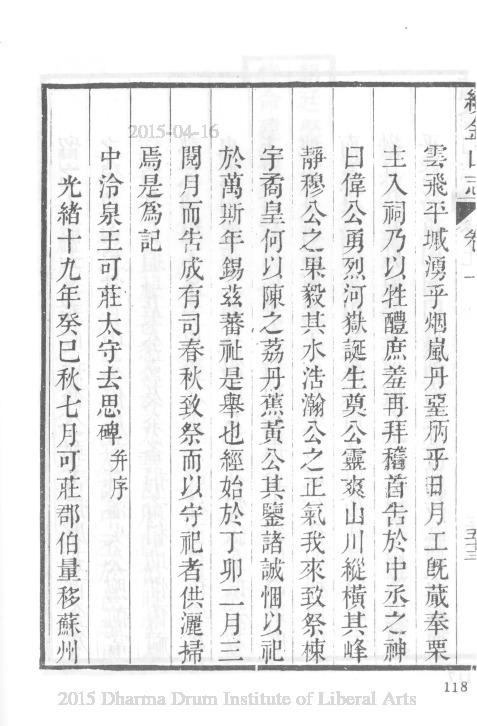 續金山志 卷上 五十三
雲飛乎墄湧乎烟嵐丹堊炳乎日月工旣蕆奉栗
主入祠乃以牲醴庶羞再拜稽首告於中丞之神
曰偉公勇烈河嶽誕生奠公靈爽山川縱橫其峰
靜穆公之果毅其水浩瀚公之正氣我來致祭棟
宇矞皇何以陳之荔丹蕉黃公其鑒諸誠悃以祀
於萬斯年錫茲蕃祉是舉也經始於丁卯二月三
閱月而告成有司春秋致祭而以守祀者供灑掃
焉是爲記
中泠泉王可莊太守去思碑 幷序
光緒十九年癸巳秋七月可莊郡伯量移蘇州
2015-04-16
118
2015 Dharma Drum Institute of Liberal Arts